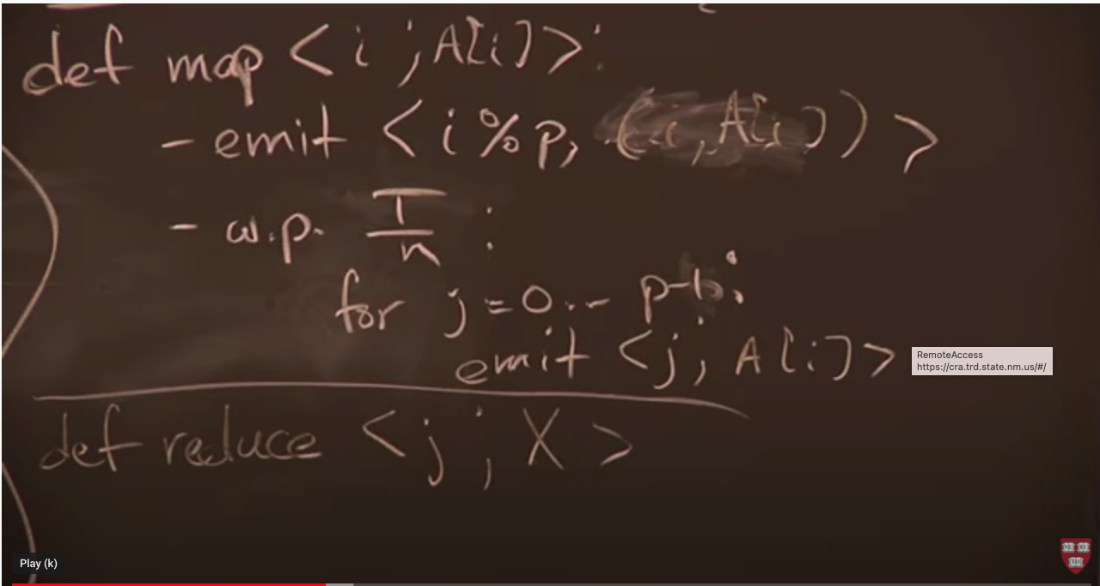 def map <i ; A[i]>:
- emit < i % p, (i, A[i]) >
- w.p. T/n :
for j = 0 ... p-1:
emit <j ; A[i]>
RemoteAccess
https://cra.trd.state.nm.us/#/
def reduce <j ; X>
Play (k)